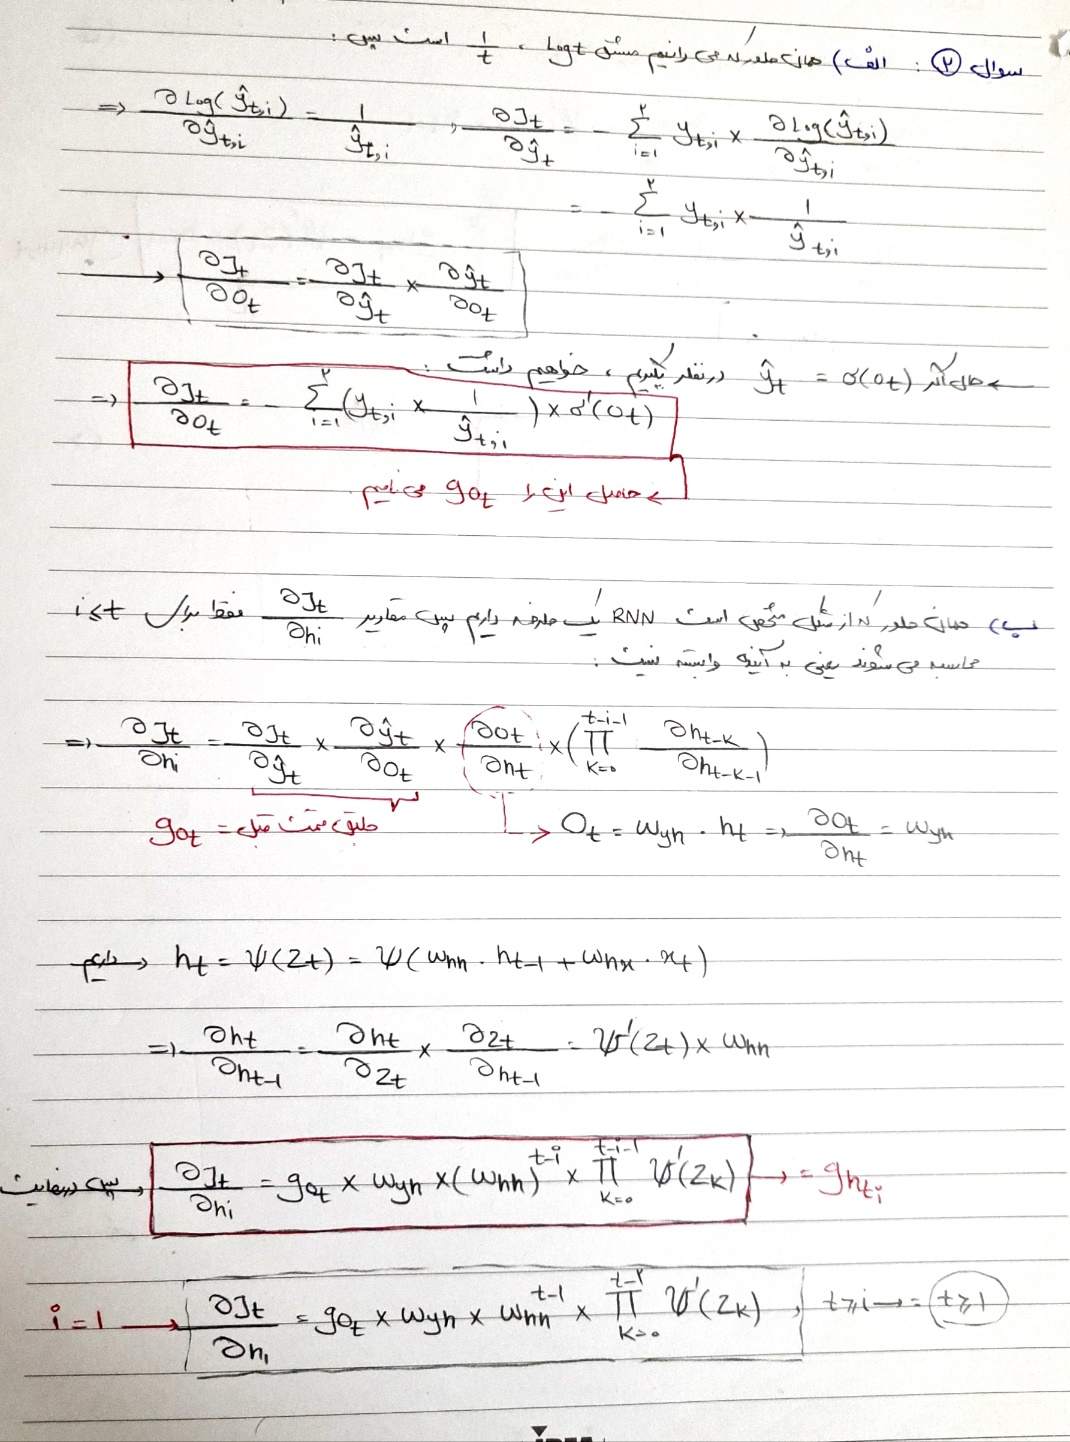 سوال ۲ : الف) همان طور که می دانیم مشتق Log t ، 1/t است پس :
=> ∂Log(ŷt,i)/∂ŷt,i = 1/ŷt,i , ∂Jt/∂ŷt = - Σ_{i=1}^{۲} yt,i × ∂Log(ŷt,i)/∂ŷt,i
= - Σ_{i=1}^{۲} yt,i × 1/ŷt,i
→ ∂Jt/∂Ot = ∂Jt/∂ŷt × ∂ŷt/∂Ot
← حال اگر ŷt = σ(Ot) در نظر بگیریم ، خواهیم داشت :
=> ∂Jt/∂Ot = - Σ_{i=1}^{۲} (yt,i × 1/ŷt,i) × σ'(Ot)
← حاصل این را gOt می نامیم.
ب) همان طور که از شکل مشخص است RNN یک طرفه داریم پس مقادیر ∂Jt/∂hi فقط برای i≤t
محاسبه می شوند یعنی به آینده وابسته نیست :
=> ∂Jt/∂hi = ∂Jt/∂ŷt × ∂ŷt/∂Ot × ∂Ot/∂ht × (Π_{K=0}^{t-i-1} ∂ht-K/∂ht-K-1)
gOt = طبق قسمت قبل → Ot = Wyh . ht => ∂Ot/∂ht = Wyh
داریم → ht = ψ(Zt) = ψ(Whh . ht-1 + Whx . xt)
=> ∂ht/∂ht-1 = ∂ht/∂Zt × ∂Zt/∂ht-1 = ψ'(Zt) × Whh
پس در نهایت → ∂Jt/∂hi = gOt × Wyh × (Whh)^{t-i} × Π_{K=0}^{t-i-1} ψ'(ZK) → = ghti
i=1 → ∂Jt/∂h1 = gOt × Wyh × Whh^{t-1} × Π_{K=0}^{t-۲} ψ'(ZK) , t≥i → = t≥1